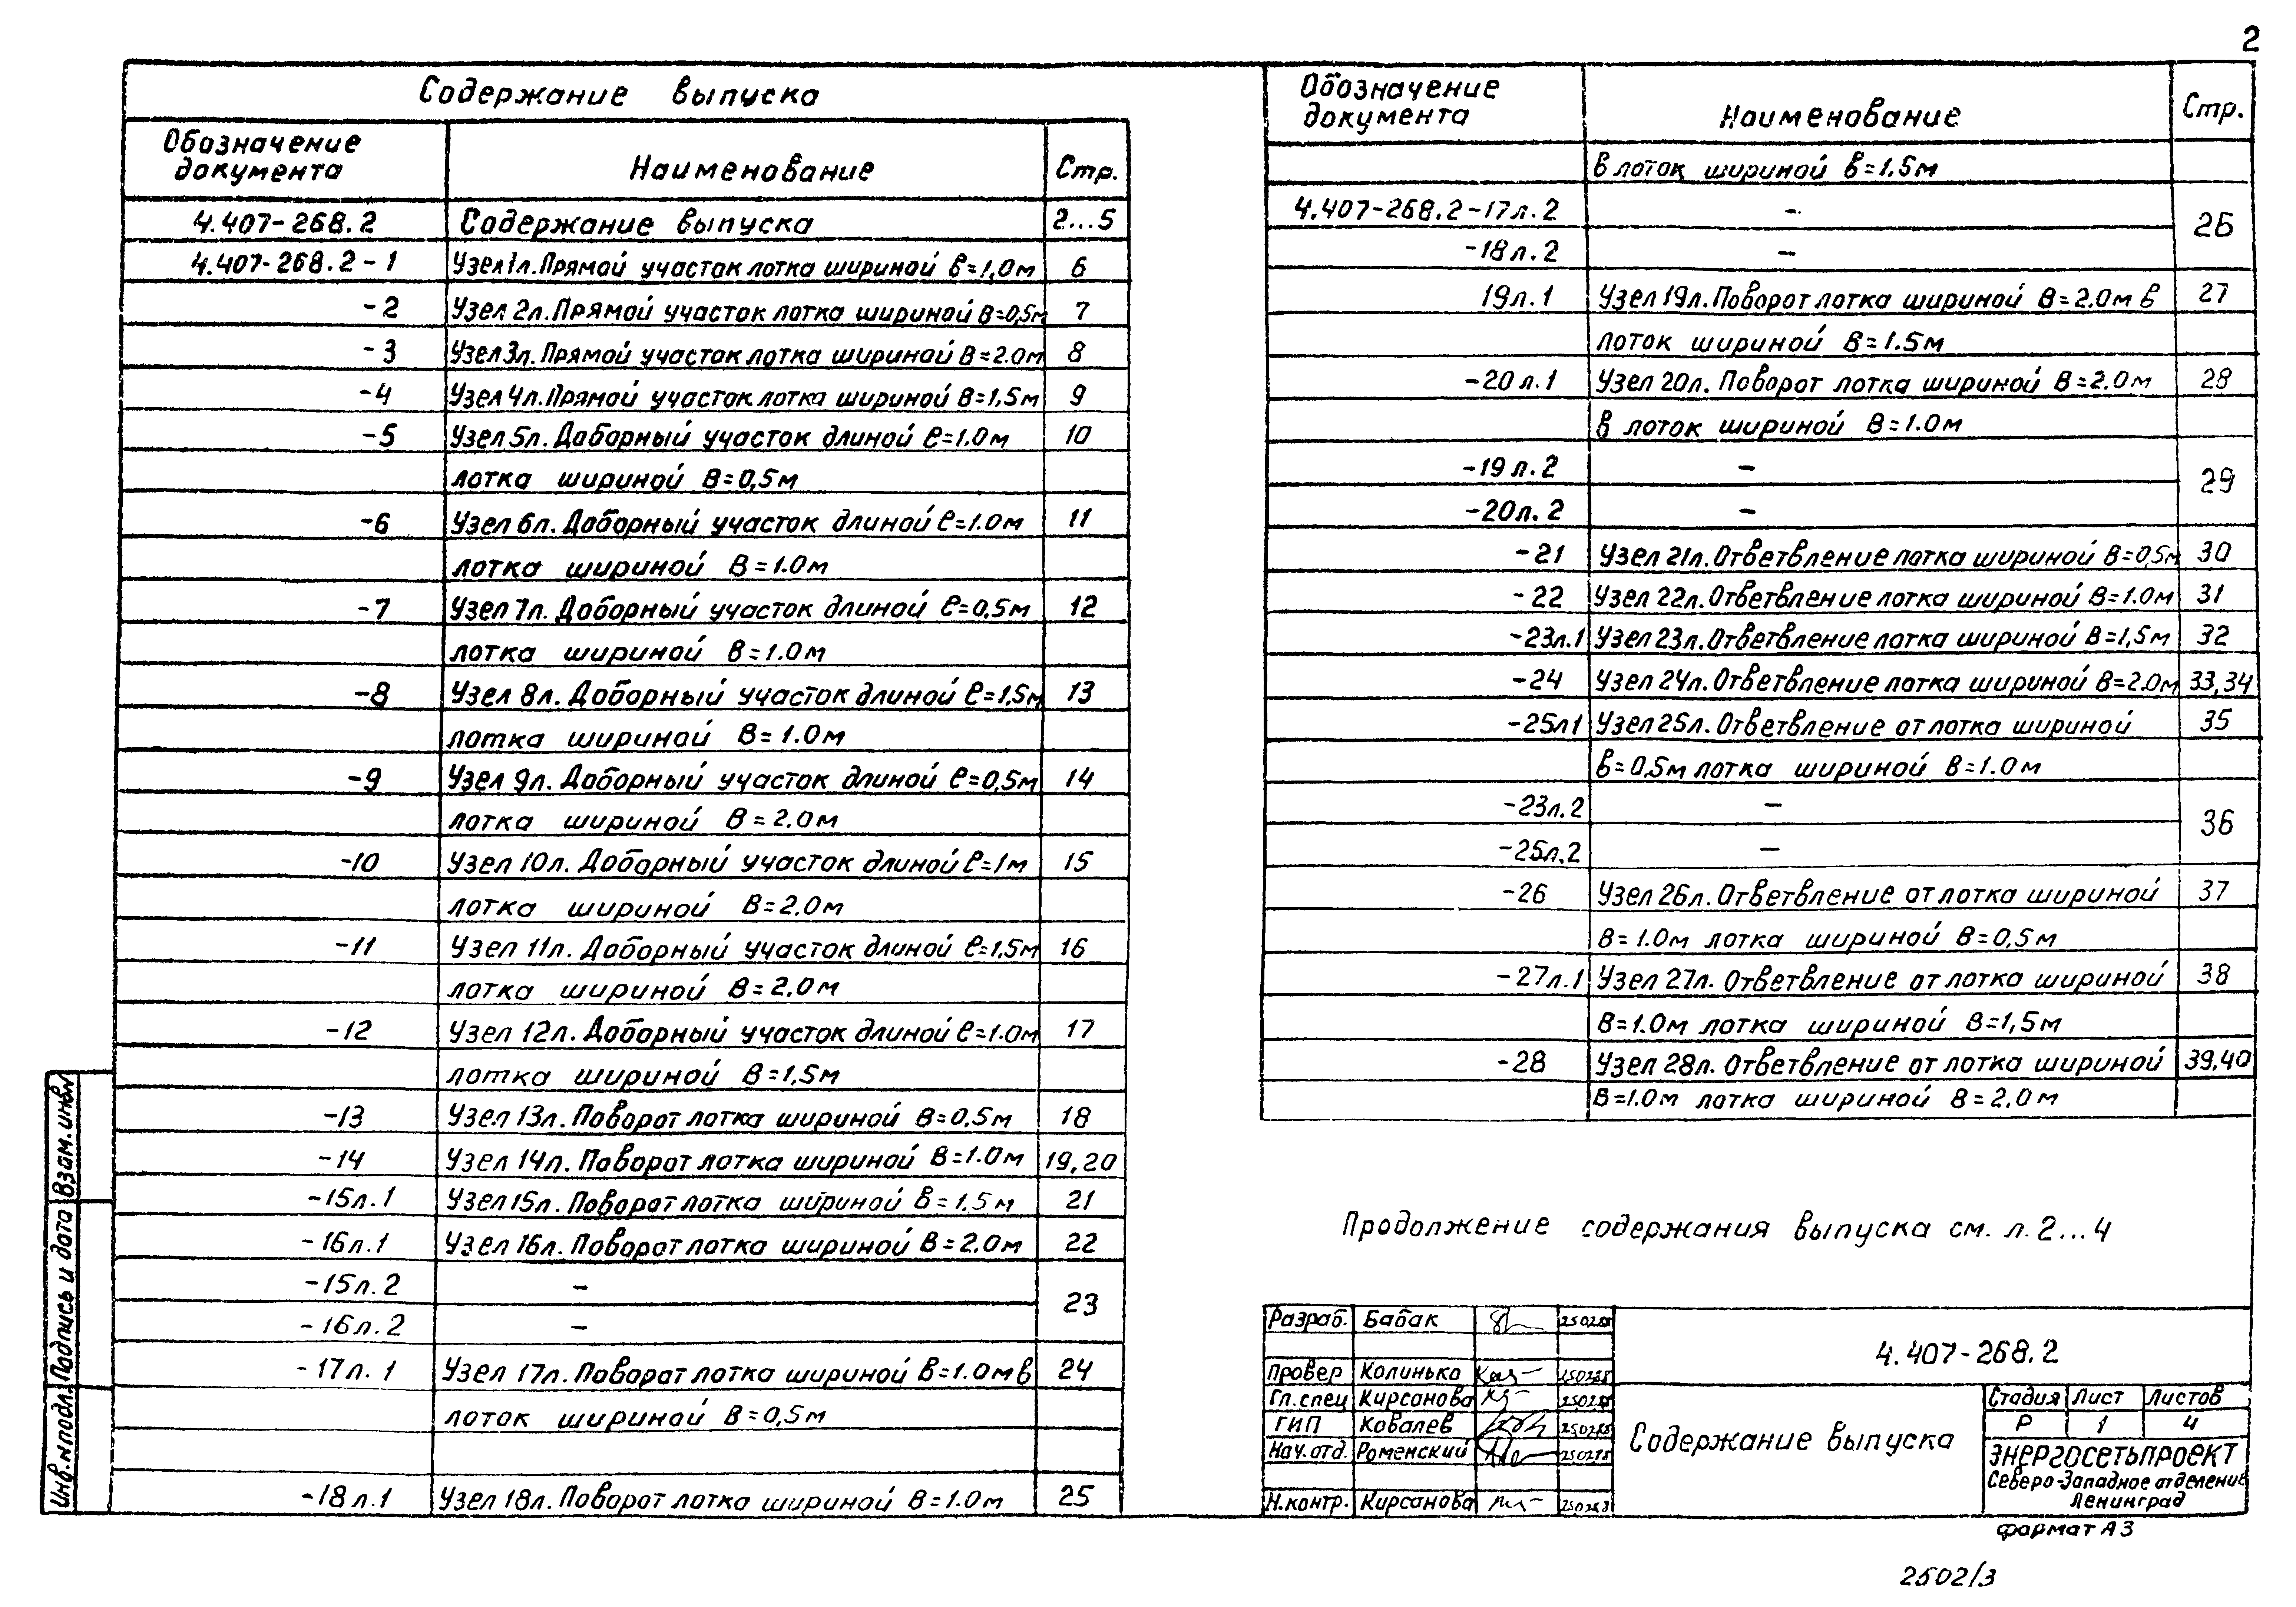 2
Содержание выпуска
Обозначение документа Наименование Стр.
4.407-268.2 Содержание выпуска 2...5
4.407-268.2-1 Узел 1л. Прямой участок лотка шириной в=1,0м 6
-2 Узел 2л. Прямой участок лотка шириной В=0,5м 7
-3 Узел 3л. Прямой участок лотка шириной В=2.0м 8
-4 Узел 4л. Прямой участок лотка шириной В=1,5м 9
-5 Узел 5л. Доборный участок длиной ℓ=1.0м 10
лотка шириной В=0,5м
-6 Узел 6л. Доборный участок длиной ℓ=1.0м 11
лотка шириной В=1.0м
-7 Узел 7л. Доборный участок длиной ℓ=0,5м 12
лотка шириной В=1.0м
-8 Узел 8л. Доборный участок длиной ℓ=1,5м 13
лотка шириной В=1.0м
-9 Узел 9л. Доборный участок длиной ℓ=0,5м 14
лотка шириной В=2.0м
-10 Узел 10л. Доборный участок длиной ℓ=1м 15
лотка шириной В=2.0м
-11 Узел 11л. Доборный участок длиной ℓ=1,5м 16
лотка шириной В=2.0м
-12 Узел 12л. Доборный участок длиной ℓ=1.0м 17
лотка шириной В=1,5м
-13 Узел 13л. Поворот лотка шириной В=0,5м 18
-14 Узел 14л. Поворот лотка шириной В=1.0м 19,20
-15л.1 Узел 15л. Поворот лотка шириной в=1,5м 21
-16л.1 Узел 16л. Поворот лотка шириной В=2.0м 22
-15л.2 –
23
-16л.2 –
-17л.1 Узел 17л. Поворот лотка шириной В=1.0м в 24
лоток шириной В=0,5м
-18л.1 Узел 18л. Поворот лотка шириной В=1.0м 25
Обозначение документа Наименование Стр.
в лоток шириной в=1.5м
4.407-268.2-17л.2 –
26
-18л.2 –
19л.1 Узел 19л. Поворот лотка шириной В=2.0м в 27
лоток шириной В=1.5м
-20л.1 Узел 20л. Поворот лотка шириной В=2.0м 28
в лоток шириной В=1.0м
-19л.2 –
29
-20л.2 –
-21 Узел 21л. Ответвление лотка шириной В=0,5м 30
-22 Узел 22л. Ответвление лотка шириной В=1.0м 31
-23л.1 Узел 23л. Ответвление лотка шириной В=1,5м 32
-24 Узел 24л. Ответвление лотка шириной В=2.0м 33,34
-25л1 Узел 25л. Ответвление от лотка шириной 35
в=0,5м лотка шириной В=1.0м
-23л.2 –
36
-25л.2 –
-26 Узел 26л. Ответвление от лотка шириной 37
В=1.0м лотка шириной В=0,5м
-27л.1 Узел 27л. Ответвление от лотка шириной 38
В=1.0м лотка шириной В=1,5м
-28 Узел 28л. Ответвление от лотка шириной 39,40
В=1.0м лотка шириной В=2,0м
Продолжение содержания выпуска см. л. 2...4
Разраб. Бабак 250288
Провер Колинько 250288
Гл.спец Кирсанова 250288
ГИП Ковалев 250288
Нач.отд. Роменский 250288
Н.контр. Кирсанова 250288
4.407-268.2
Содержание выпуска
Стадия Лист Листов
Р 1 4
ЭНЕРГОСЕТЬПРОЕКТ
Северо-Западное отделение
Ленинград
формат А3
2502/3
Инв.№подл. Подпись и дата Взам.инв№